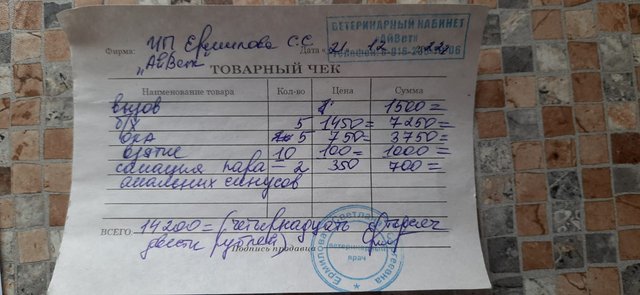 ВЕТЕРИНАРНЫЙ КАБИНЕТ
«АйВет»
Фирма: ИП Ермилова С.С. Дата «21 12
"АйВет"
ТОВАРНЫЙ ЧЕК
Наименование товара Кол-во Цена Сумма
вызов 1500=
б/х 5 1450= 7250=
ОКА 5 750= 3750=
взятие 10 100= 1000=
санация пара 2 350 700=
анальных синусов
ВСЕГО: 14200= (четырнадцать тысяч
двести рублей)
Подпись продавца
ветеринарный
врач